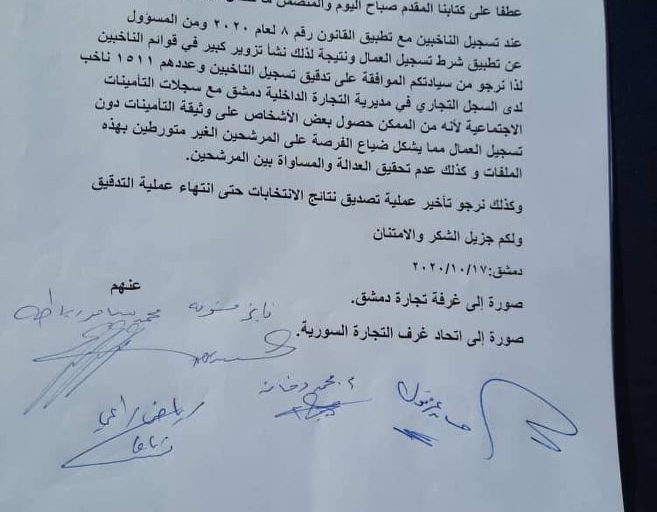 عطفا على كتابنا المقدم صباح اليوم والمتضمن
عند تسجيل الناخبين مع تطبيق القانون رقم ٨ لعام ٢٠٢٠ ومن المسؤول
عن تطبيق شرط تسجيل العمال ونتيجة لذلك نشأ تزوير كبير في قوائم الناخبين
لذا نرجو من سيادتكم الموافقة على تدقيق تسجيل الناخبين وعددهم ١٥١١ ناخب
لدى السجل التجاري في مديرية التجارة الداخلية دمشق مع سجلات التأمينات
الاجتماعية لأنه من الممكن حصول بعض الأشخاص على وثيقة التأمينات دون
تسجيل العمال مما يشكل ضياع الفرصة على المرشحين الغير متورطين بهذه
الملفات و كذلك عدم تحقيق العدالة والمساواة بين المرشحين.
وكذلك نرجو تأخير عملية تصديق نتائج الانتخابات حتى انتهاء عملية التدقيق
ولكم جزيل الشكر والامتنان
دمشق:٢٠٢٠/١٠/١٧
عنهم
صورة إلى غرفة تجارة دمشق.
صورة إلى اتحاد غرف التجارة السورية.
محمد
رياض